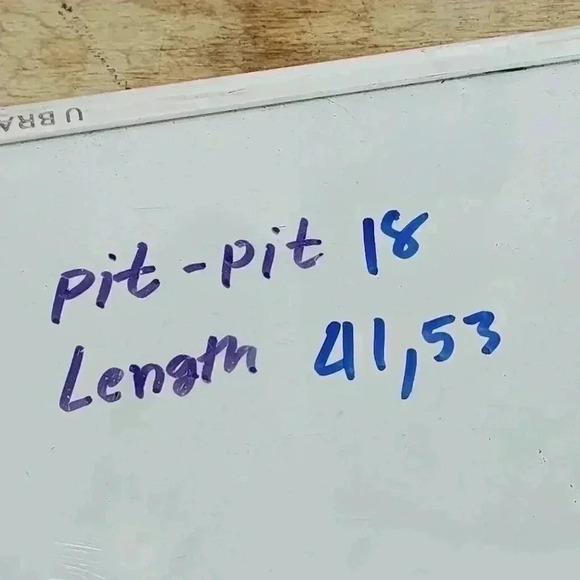 U BRA
pit-pit 18
Length 41,53